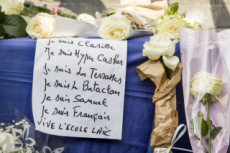 Je suis Clarissa
Je suis Hyper Casher
Je suis des Terrasses
Je suis le Bataclan
Je suis Samuel
Je suis Français
VIVE L'ÉCOLE LAÏC